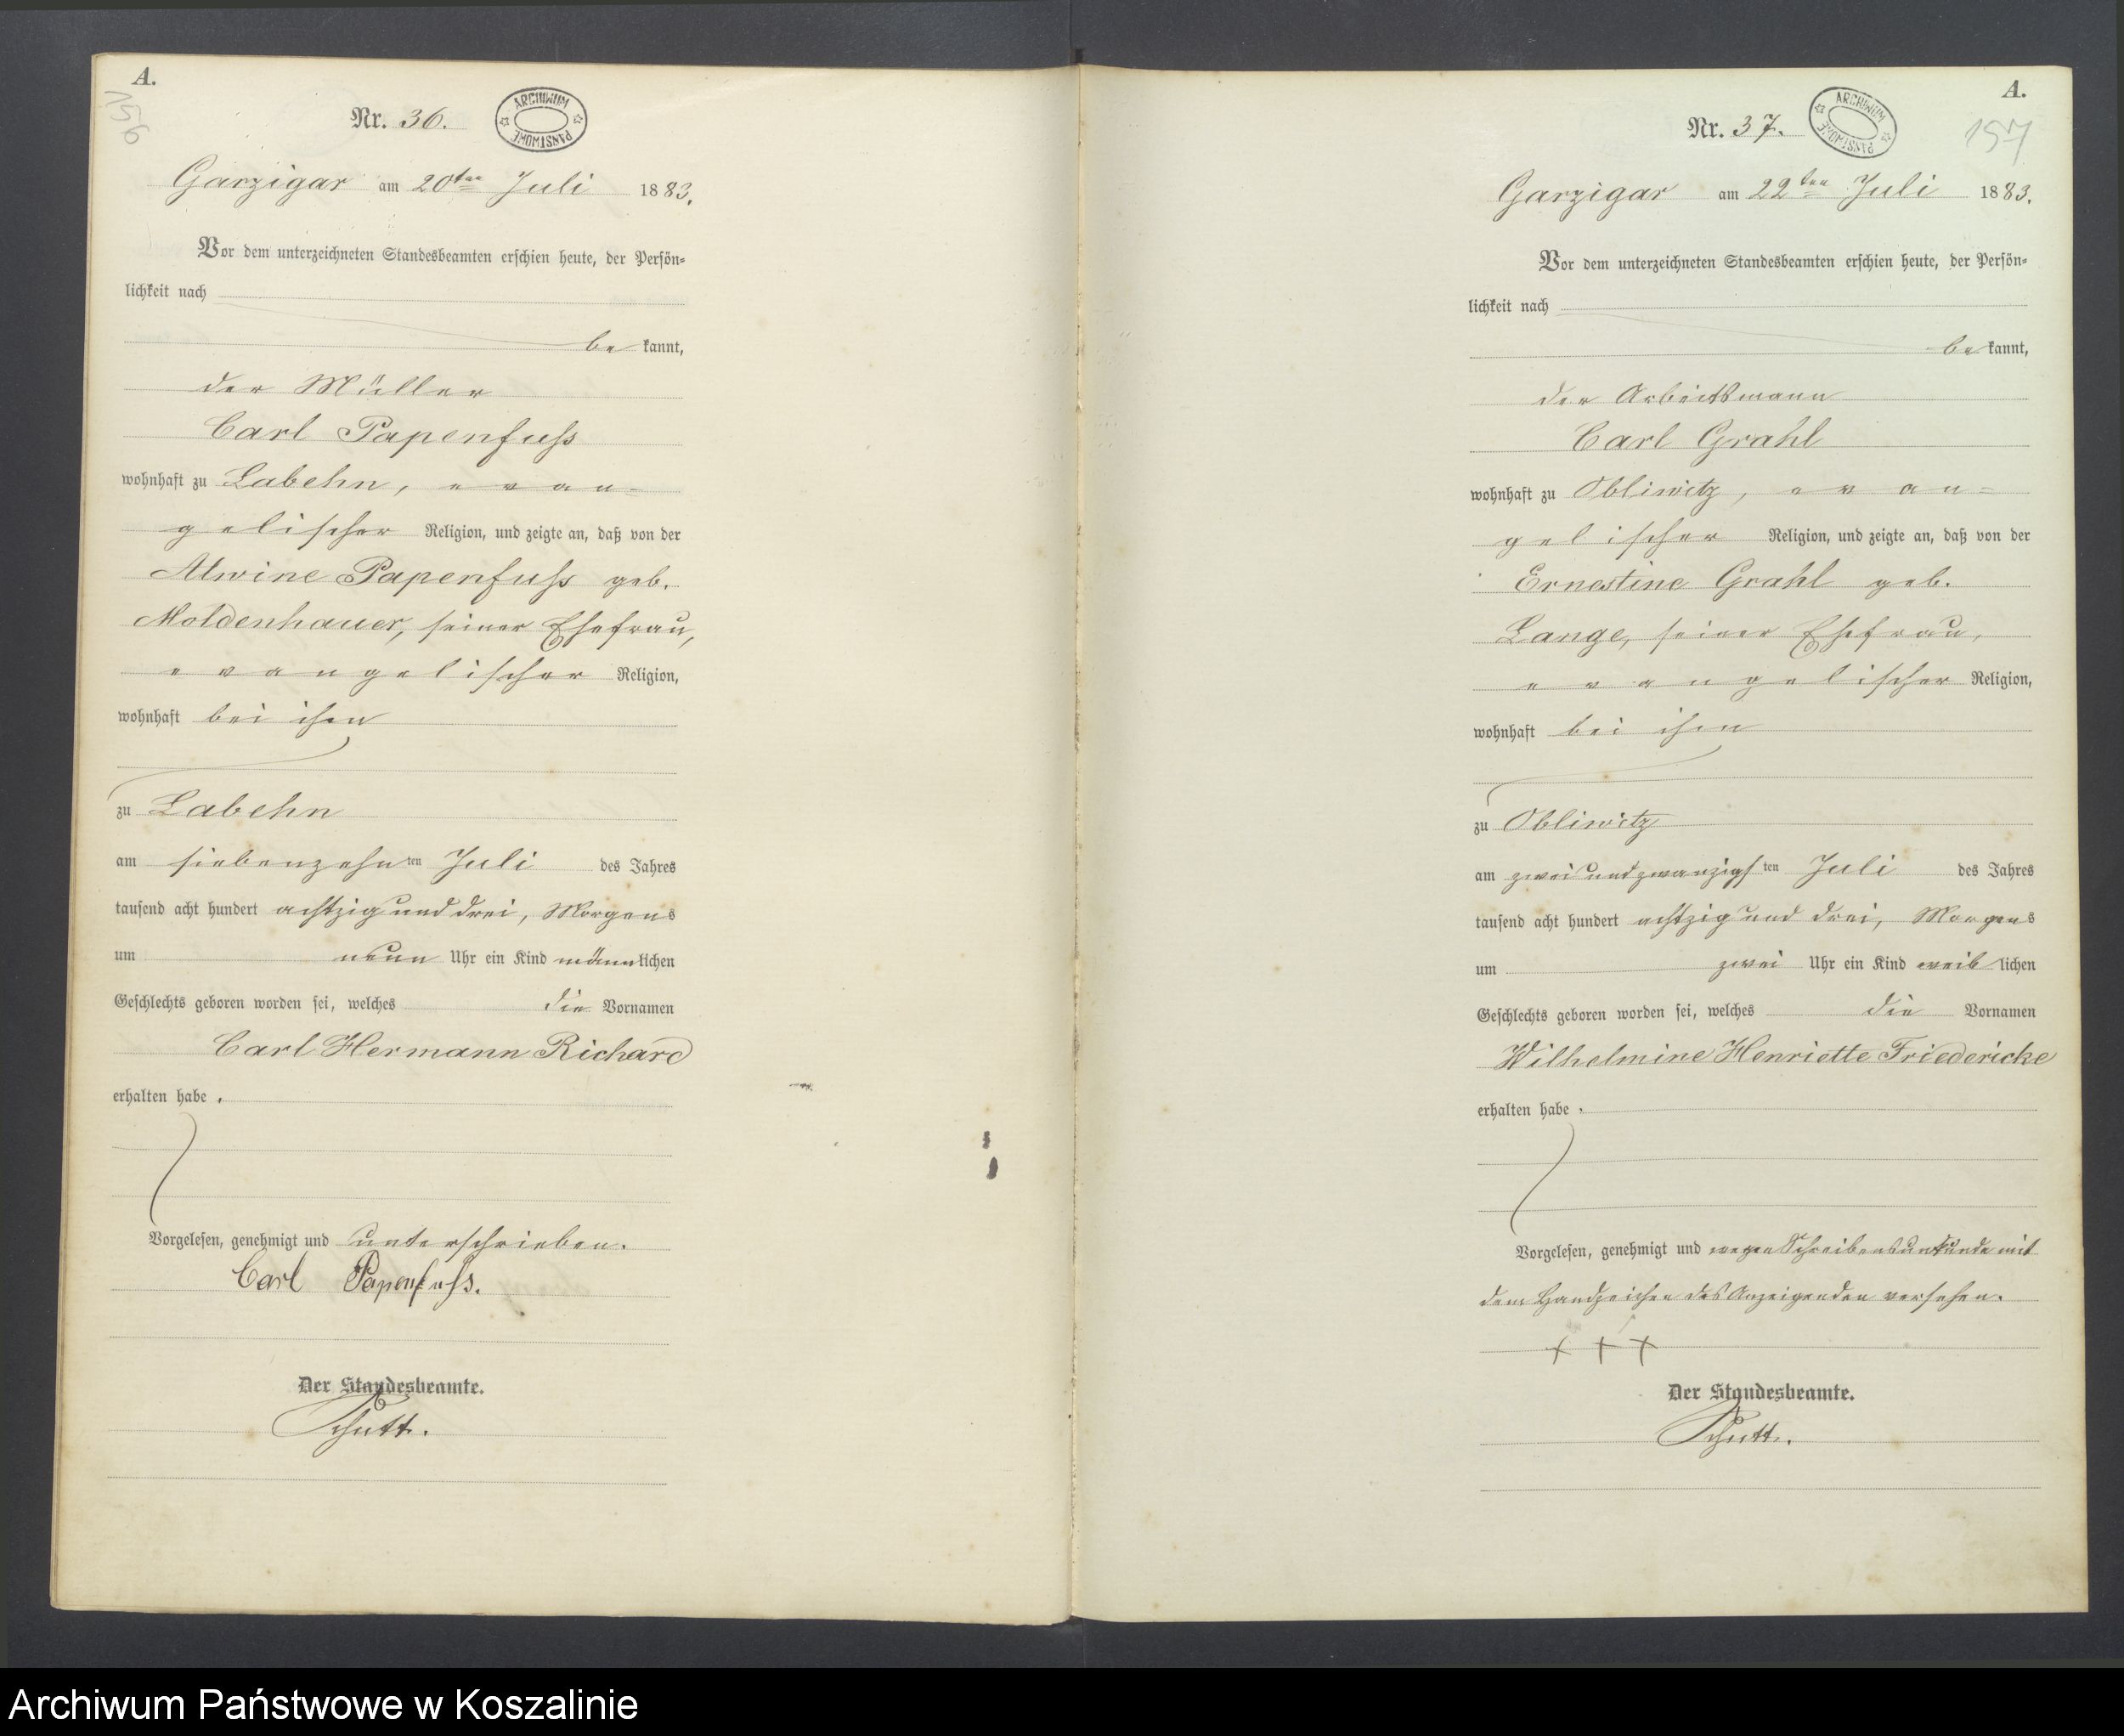 A.
156
Nr. 36.
ARCHIWUM PAŃSTWOWE
Garzigar am 20ten Juli 1883.
Vor dem unterzeichneten Standesbeamten erschien heute, der Persön-
lichkeit nach
be kannt,
der Müller
Carl Papenfuß
wohnhaft zu Labehn, evan-
gelischer Religion, und zeigte an, daß von der
Alwine Papenfuß geb.
Moldenhauer, seiner Ehefrau,
evangelischer Religion,
wohnhaft bei ihm
zu Labehn
am siebenzehn ten Juli des Jahres
tausend acht hundert achtzig und drei, Morgens
um neun Uhr ein Kind männlichen
Geschlechts geboren worden sei, welches die Vornamen
Carl Hermann Richard
erhalten habe.
Vorgelesen, genehmigt und unterschrieben.
Carl Papenfuß.
Der Standesbeamte.
Schutt.
A.
157
Nr. 37.
ARCHIWUM PAŃSTWOWE
Garzigar am 22ten Juli 1883.
Vor dem unterzeichneten Standesbeamten erschien heute, der Persön-
lichkeit nach
be kannt,
der Arbeitsmann
Carl Grahl
wohnhaft zu Obliwitz, evan=
gelischer Religion, und zeigte an, daß von der
Ernestine Grahl geb.
Lange, seiner Ehefrau,
evangelischer Religion,
wohnhaft bei ihm
zu Obliwitz
am zwei und zwanzigsten Juli des Jahres
tausend acht hundert achtzig und drei, Morgens
um zwei Uhr ein Kind weiblichen
Geschlechts geboren worden sei, welches die Vornamen
Wilhelmine Henriette Friedericke
erhalten habe.
Vorgelesen, genehmigt und wegen Schreibensunkunde mit
dem Handzeichen des Anzeigenden versehen.
+ + +
Der Standesbeamte.
Schutt.
Archiwum Państwowe w Koszalinie